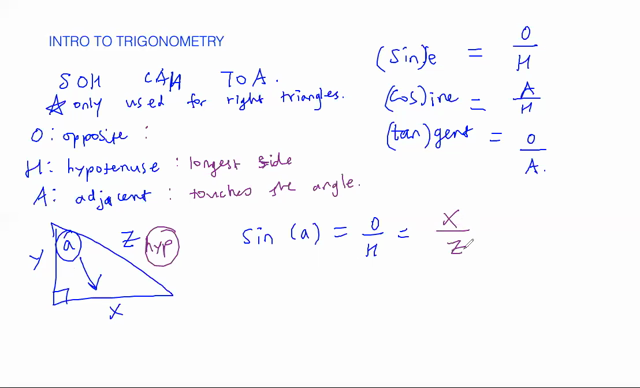 INTRO TO TRIGONOMETRY
SOH CAH TOA.
☆ only used for right triangles.
O : opposite :
H : hypotenuse : longest side
A : adjacent : touches the angle.
(Sin)e = O/H
(cos)ine = A/H
(tan)gent = O/A.
a
y
z
hyp
x
sin (a) = O/H = x/z